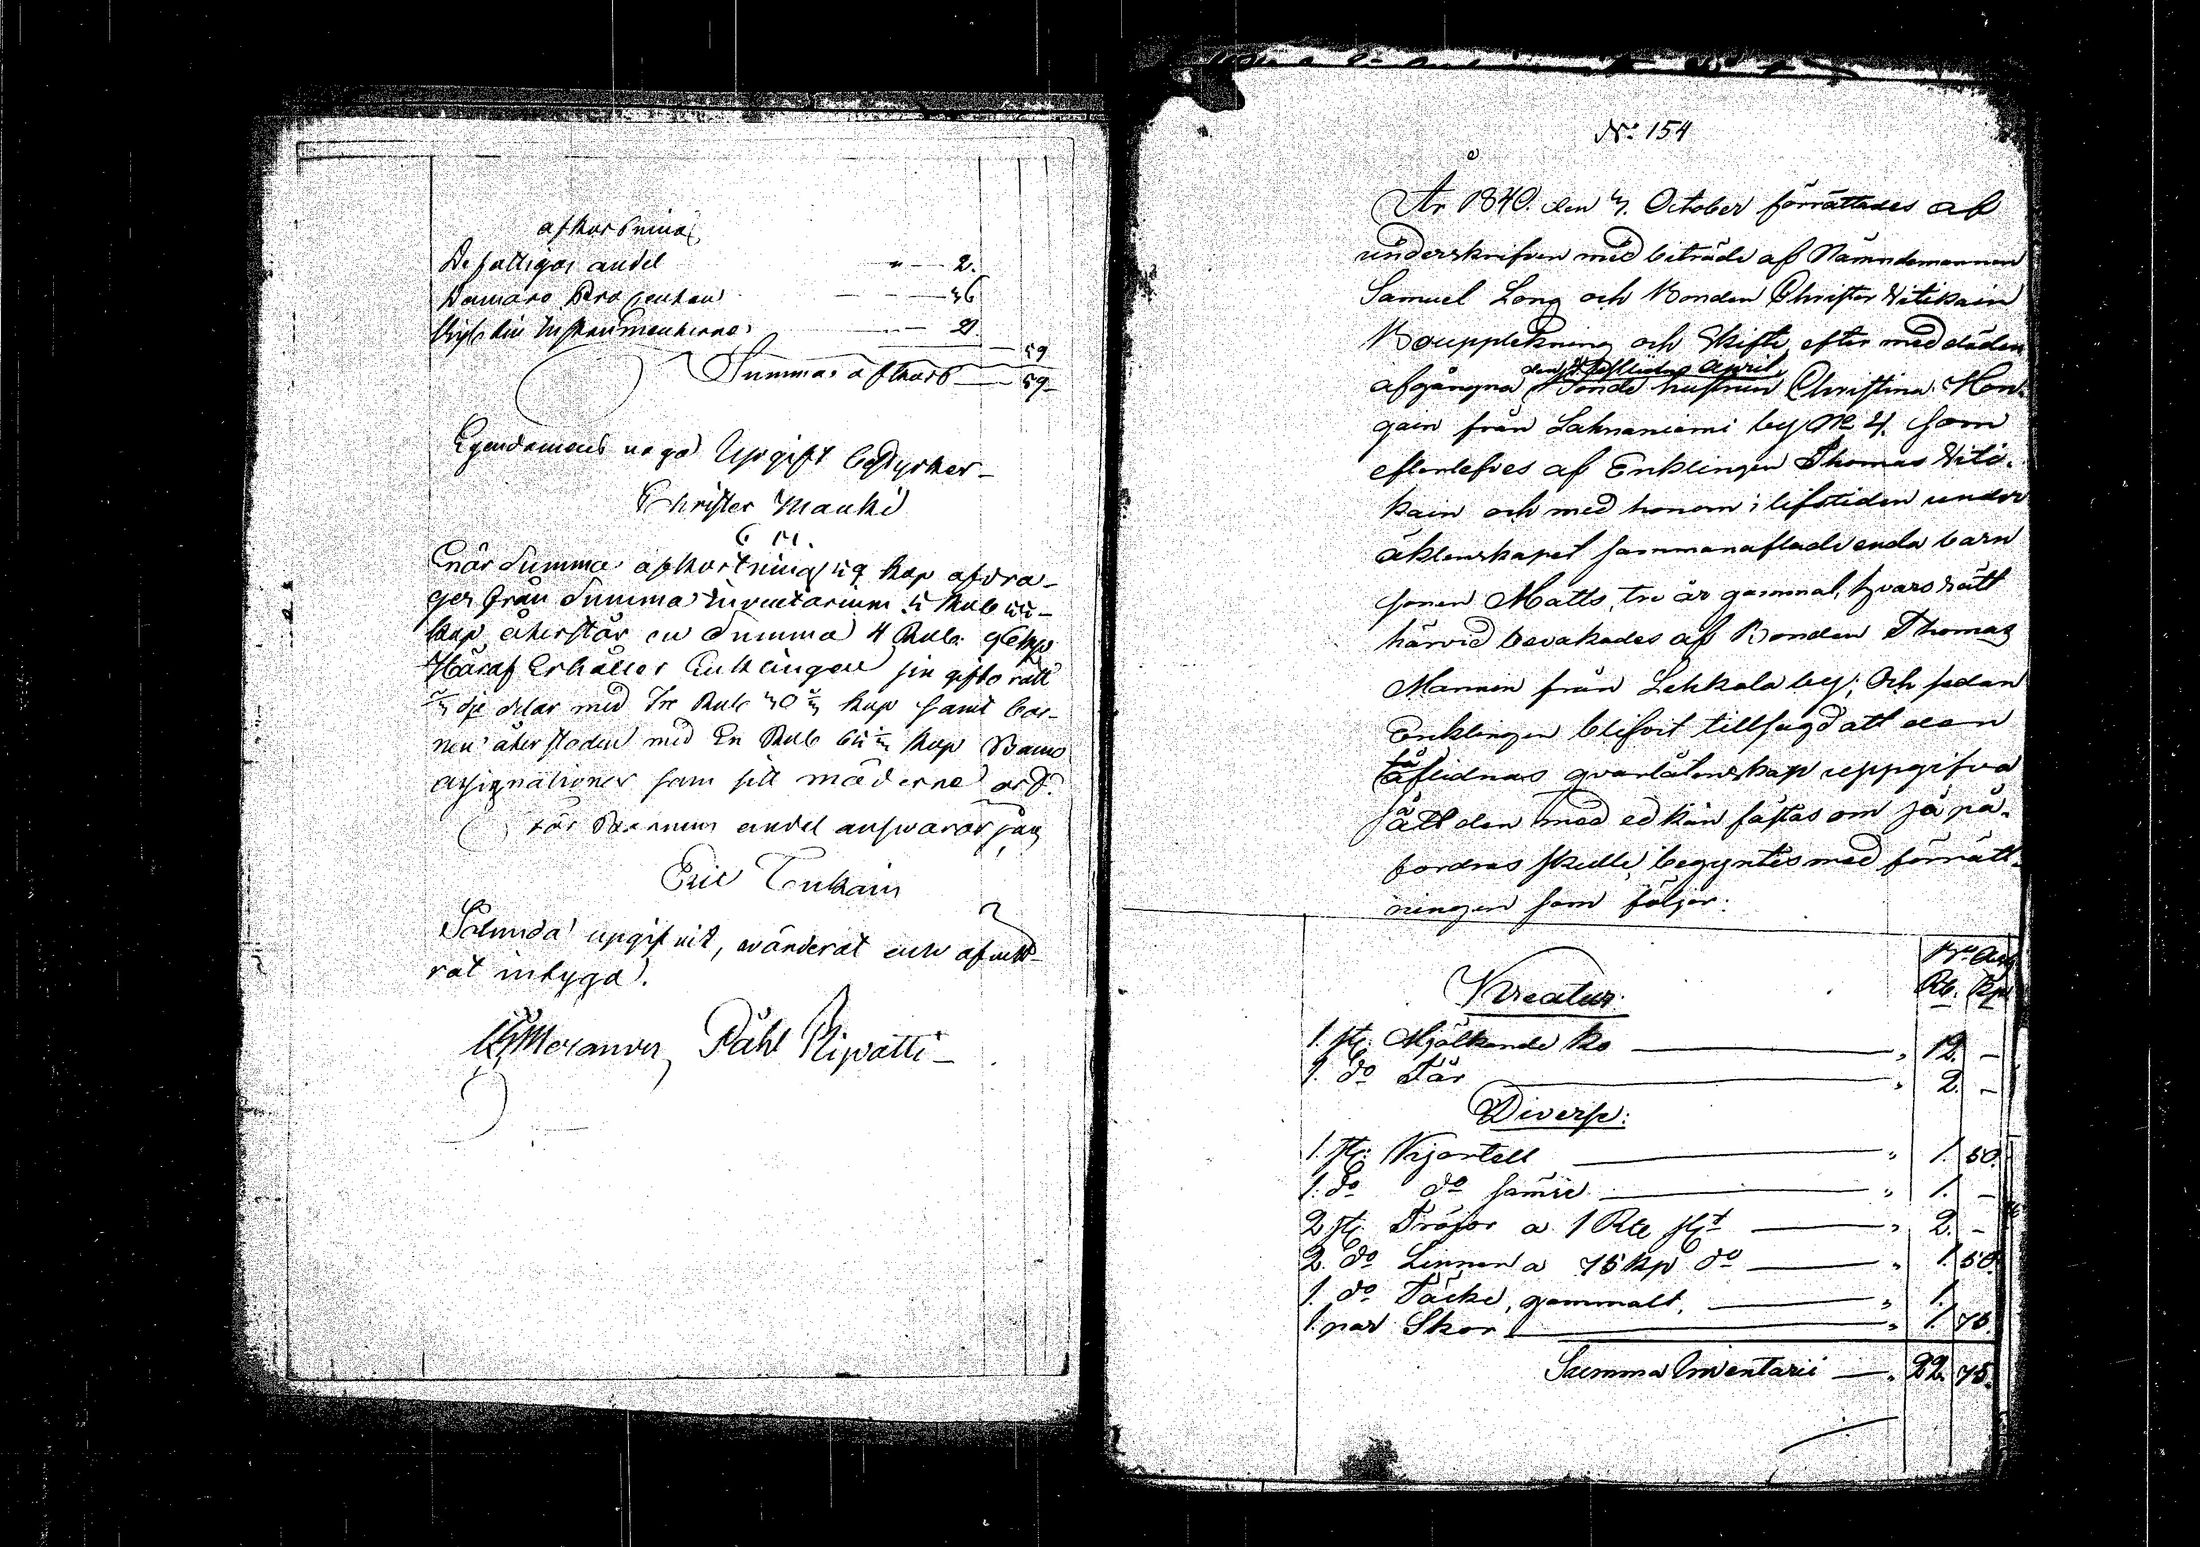 afkortning
De fattigas andel " — 2.
Domare Procenten — — 36
— — 21
— 59
Summa afkort — 59 —
Egendomens noga Upgift bestyrker —
Christer Mauki
Enär Summa afkortning 59 kop afdra-
ges från Summa Inventarium 5 Rub 55-
kop återstår en Summa 4 Rub. 96 kop
Häraf Erhåller Enklingen sin gifto rätt
dje delar med Tre Rub 30 kop samt bar-
nen återstoden med En Rub 65 kop Barns
assignationer som sitt möderne arf.
För Barnens andel answarar jag
Eric Tukain
Sålunda upgifvit, wärderat och afvitt-
rat intyga.
Påhl Ripatti —
No. 154
År 1840. den 7. October förrättades af
underskrifven med biträde af Nämndemannen
Samuel Long och Bonden Christer Vitikain
Bouppteckning och Skifte efter med döden
den sistledne April
afgångna Bonde hustrun Christina Hon-
gain från Lahnaniemi by No 4. som
efterlefves af Enklingen Thomas Viti-
kain och med honom i lifstiden under
äktenskapet sammanaflade enda barn
sonen Matts, tre år gammal, hvars rätt
härvid bevakades af Bonden Thomas
Mannen från Lehkola by; Och sedan
Enklingen blifvit tillsagd att den
aflidnas qvarlåtenskap uppgifva
så
att den med ed kan fästas om så på-
fordras skulle, begyntes med förrätt-
ningen som följer:
Rb. Kp
Kreatur.
1. st. Mjölkande Ko — " 12. —
1. do Får — " 2. —
Diverse:
1. st. Kjortell — " 1. 50.
1. do do sämre — " 1. —
2 st. Tröjor a 1 Rb st — " 2. —
2. do Linnen a 75 kp do — " 1. 50.
1. do Täcke, gammalt, — " 1.
1. par Skor — " 1. 75.
Summa Inventarii — " 22. 75.